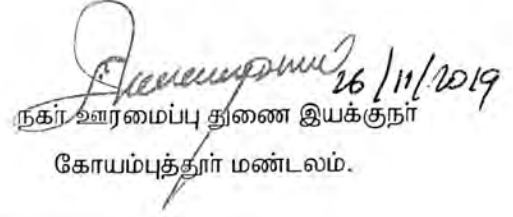 26/11/2019
நகர் ஊரமைப்பு துணை இயக்குநர்
கோயம்புத்தூர் மண்டலம்.